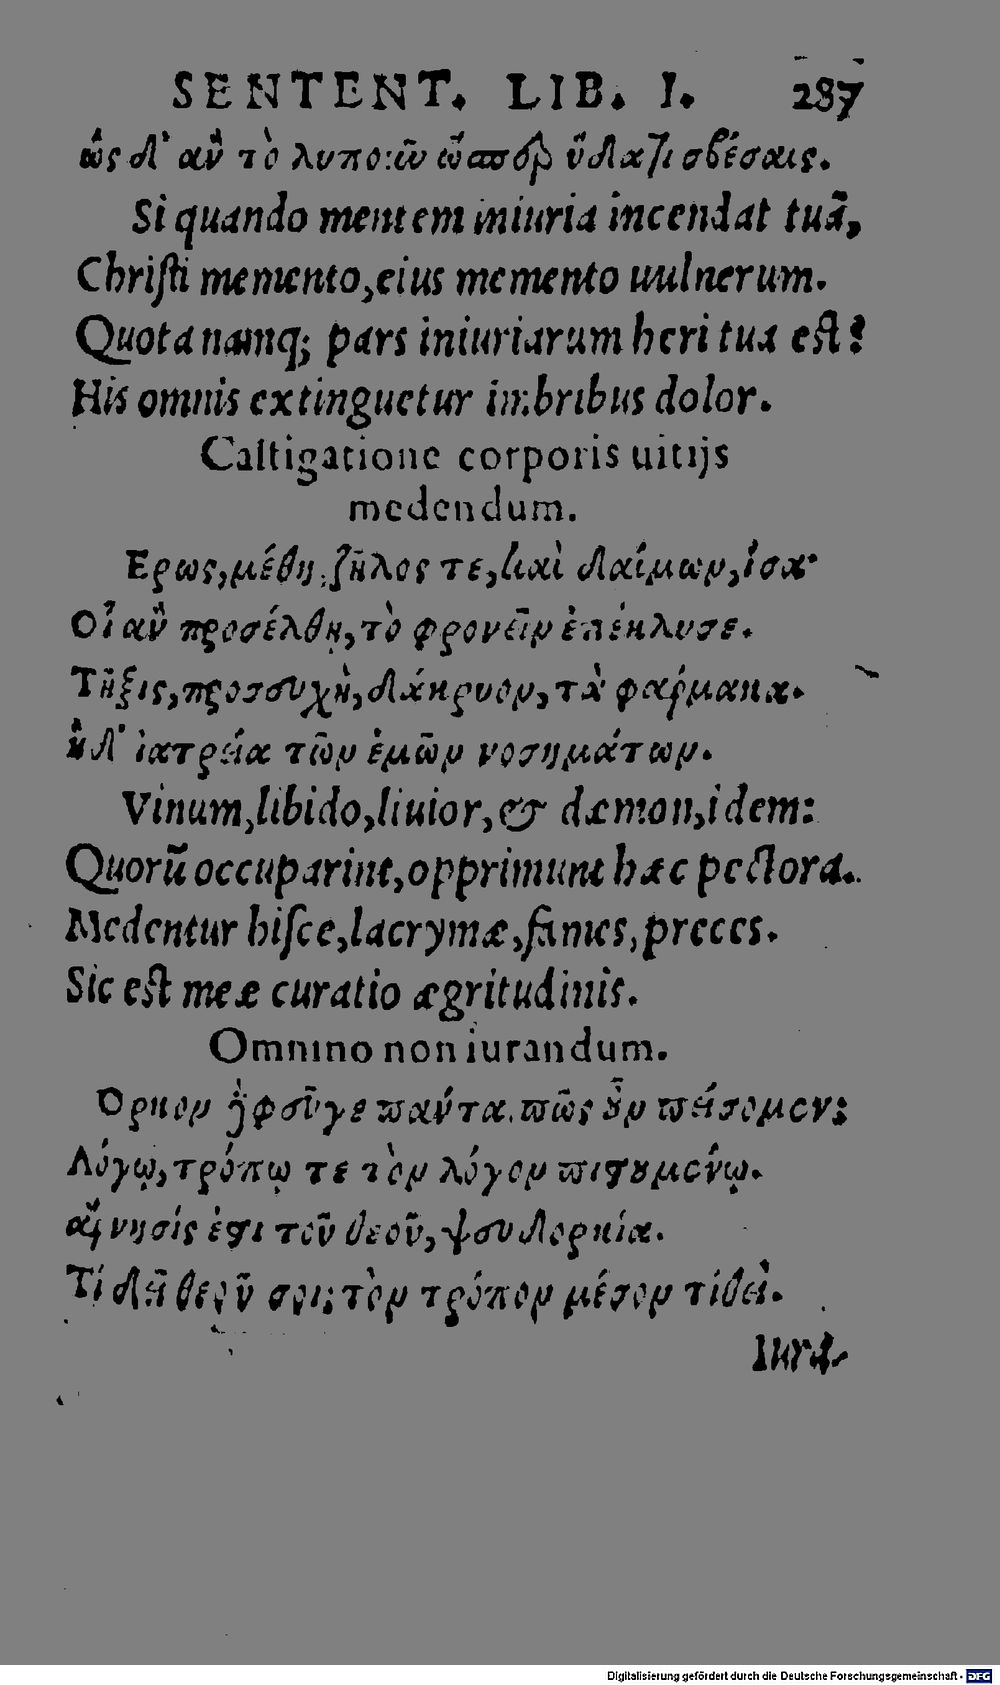 SENTENT. LIB. I. 287
ὡς δ' ἂν τὸ λυποῦν ὥσπερ ὕδατι σβέσαις.
Si quando mentem iniuria incendat tuã,
Christi memento, eius memento uulnerum.
Quota namq; pars iniuriarum heri tua est?
His omnis extinguetur imbribus dolor.
Castigatione corporis uitijs
medendum.
Ερως, μέθη, ζῆλος τε, καὶ δαίμων, ἴσα·
Οἷ ἂν προσέλθῃ, τὸ φρονεῖν ἐπέκλυσε.
Τῆξις, προσευχὴ, δάκρυον, τὰ φάρμακα.
ἥδ' ἰατρεία τῶν ἐμῶν νοσημάτων.
Vinum, libido, liuior, & dæmon, idem:
Quorũ occuparint, opprimunt hæc pectora.
Medentur hisce, lacrymæ, fames, preces.
Sic est meæ curatio ægritudinis.
Omnino non iurandum.
Ὅρκον δὲ φεῦγε πάντα. πῶς οὖν πείσομεν;
Λόγῳ, τρόπῳ τε τὸν λόγον πιστουμένῳ.
ἄρνησίς ἐστι τοῦ θεοῦ, ψευδορκία.
Τί δεῖ θεοῦ σοι; τὸν τρόπον μέσον τίθει.
Iura-
Digitalisierung gefördert durch die Deutsche Forschungsgemeinschaft - DFG